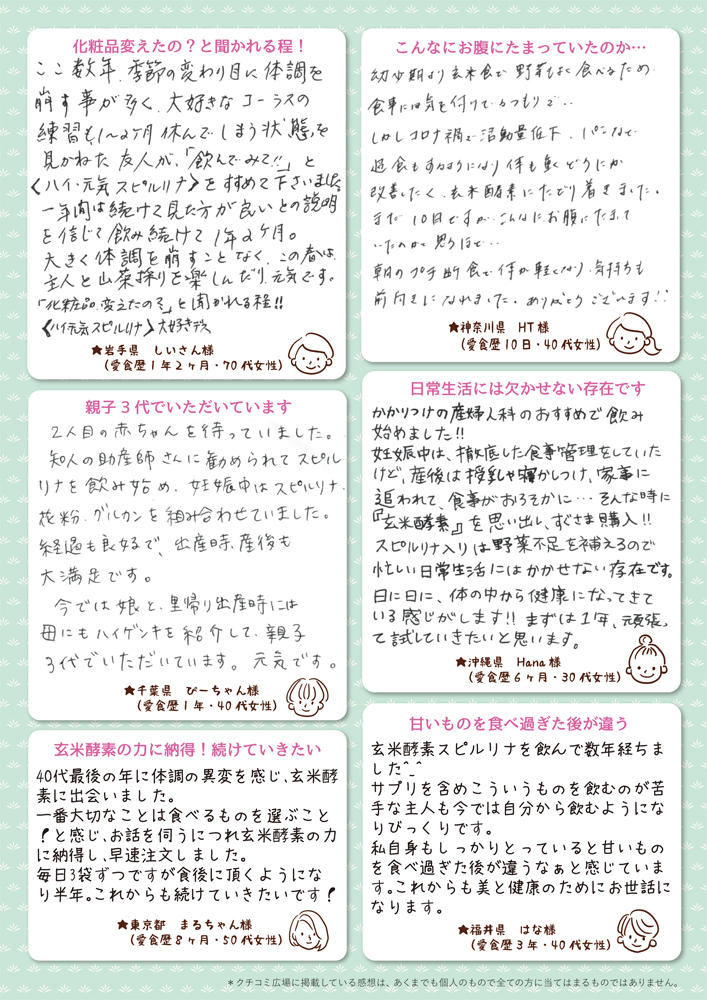 化粧品変えたの？と聞かれる程！
ここ数年、季節の変わり目に体調を
崩す事が多く、大好きなコーラスの
練習も1〜2ヶ月休んでしまう状態を
見かねた友人が、「飲んでみて!!」と
〈ハイ・元気スピルリナ〉をすすめて下さいました
一年間は続けて見た方が良いとの説明
を信じて飲み続けて1年2ヶ月。
大きく体調を崩すことなく、この春は、
主人と山菜採りを楽しんだり元気です。
「化粧品、変えたの？」と聞かれる程!!
〈ハイ・元気スピルリナ〉大好きデス
★岩手県　しいさん様
（愛食歴1年2ヶ月・70代女性）
親子3代でいただいています
2人目の赤ちゃんを待っていました。
知人の助産師さんに勧められてスピル
リナを飲み始め、妊娠中はスピルリナ、
花粉、グルカンを組み合わせていました。
経過も良好で、出産時、産後も
大満足です。
今では娘と、里帰り出産時には
母にもハイゲンキを紹介して、親子
3代でいただいています。元気です。
★千葉県　ぴーちゃん様
（愛食歴1年・40代女性）
玄米酵素の力に納得！続けていきたい
40代最後の年に体調の異変を感じ、玄米酵
素に出会いました。
一番大切なことは食べるものを選ぶこと
！と感じ、お話を伺うにつれ玄米酵素の力
に納得し、早速注文しました。
毎日3袋ずつですが食後に頂くようにな
り半年。これからも続けていきたいです！
★東京都　まるちゃん様
（愛食歴8ヶ月・50代女性）
こんなにお腹にたまっていたのか…
幼少期より玄米食で野菜もよく食べるため
食事には気を付けているつもりで‥
しかしコロナ禍で活動量低下、パンなど
過食もするようになり体も重くどうにか
改善したく、玄米酵素にたどり着きました。
まだ10日ですが、こんなにお腹にたまって
いたのかと思うほどで…
朝のプチ断食で体が軽くなり、気持ちも
前向きになれました。ありがとうございます!!
★神奈川県　HT様
（愛食歴10日・40代女性）
日常生活には欠かせない存在です
かかりつけの産婦人科のおすすめで飲み
始めました!!
妊娠中は、徹底した食事管理をしていた
けど、産後は授乳や寝かしつけ、家事に
追われて、食事がおろそかに…そんな時に
『玄米酵素』を思い出し、すぐさま購入!!
スピルリナ入りは野菜不足を補えるので
忙しい日常生活にはかかせない存在です。
日に日に、体の中から健康になってきて
いる感じがします!!まずは1年、頑張っ
て試していきたいと思います。
★沖縄県　Hana様
（愛食歴6ヶ月・30代女性）
甘いものを食べ過ぎた後が違う
玄米酵素スピルリナを飲んで数年経ちま
した^_^
サプリを含めこういうものを飲むのが苦
手な主人も今では自分から飲むようにな
りびっくりです。
私自身もしっかりとっていると甘いもの
を食べ過ぎた後が違うなぁと感じていま
す。これからも美と健康のためにお世話に
なります。
★福井県　はな様
（愛食歴3年・40代女性）
＊クチコミ広場に掲載している感想は、あくまでも個人のもので全ての方に当てはまるものではありません。